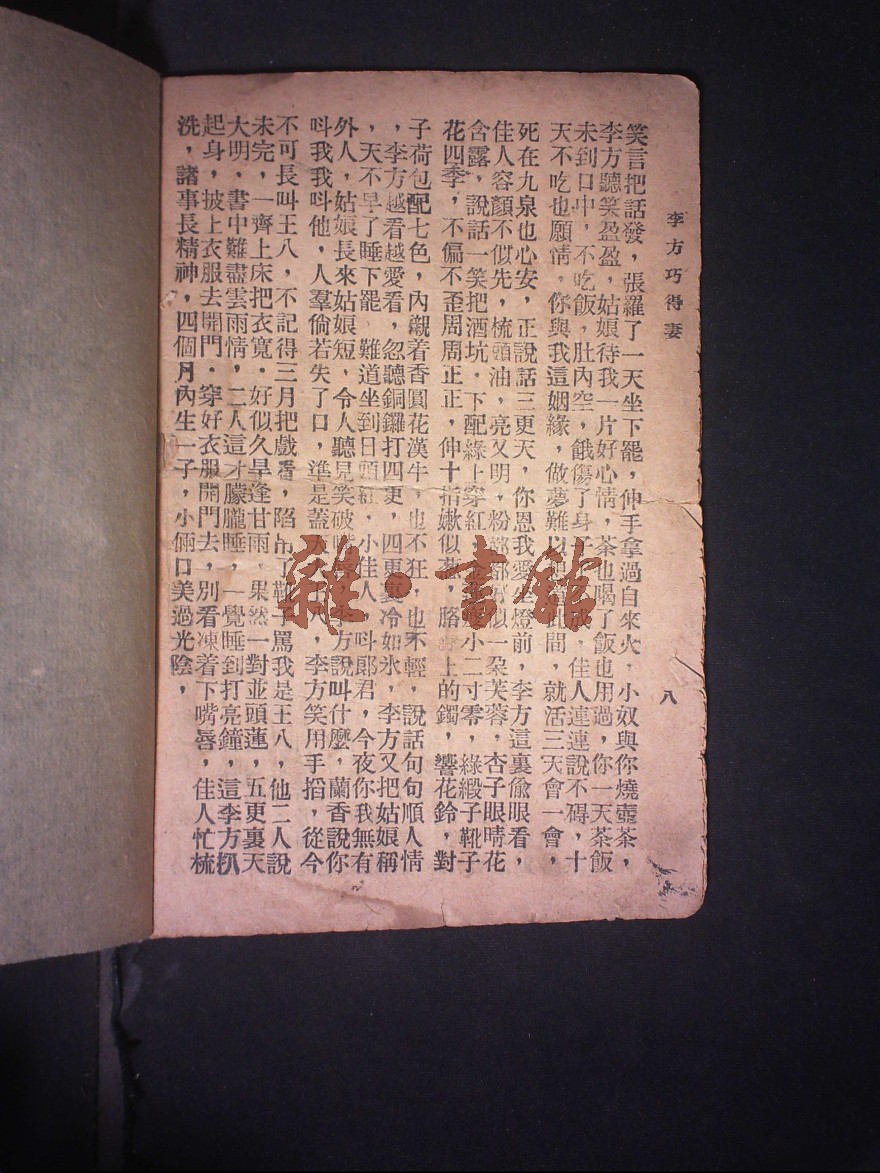 李方巧得妻
八
笑言把話發，張羅了一天坐下罷，伸手拿過自來火，小奴與你燒壺茶，
李方聽笑盈盈，姑娘待我一片好心情，茶也喝了飯也用過，你一天茶飯
未到口中，不吃飯，肚內空，餓傷了身子 成，佳人連連說不碍，十
天不吃也願情，你與我這姻緣，做夢難以 間，就活三天會一會，
死在九泉也心安，正說話三更天，你恩我愛坐燈前，李方這裏偷眼看，
佳人容顏不似先，梳頭油，亮又明，粉 似一朶芙蓉，杏子眼晴花
含露，說話一笑把酒坑，下配綠上穿紅 小二寸零，綠緞子靴子
花四季，不偏不歪周周正正，伸十指嫩似葱，胳 上的鐲，響花鈴，對
子荷包配七色，內襯着香圓花漢牛，也不狂，也不輕，說話句句順人情
，李方越看越愛看，忽聽銅鑼打四更，四更裏冷如氷，李方又把姑娘稱
，天不早了睡下罷，難道坐到日頭紅，小佳人，呌郎君，今夜你我無有
外人，姑娘長來姑娘短，令人聽見笑破嘴 李方說叫什麼，蘭香說你
呌我我呌他，人羣倘若失了口，準是蓋 八，李方笑用手搯，從今
不可長叫王八，不記得三月把戲看，陷吊了靴子罵我是王八，他二人說
未完，一齊上床把衣寬，好似久旱逢甘雨，果然一對並頭蓮，五更裏天
大明，書中難盡雲雨情，二人這才朦朧睡，一覺睡到打亮鐘，這李方扒
起身，披上衣服去開門，穿好衣服開門去，別看凍着下嘴唇，佳人忙梳
洗，諸事長精神，四個月內生一子，小倆口美過光陰，
雜·書館